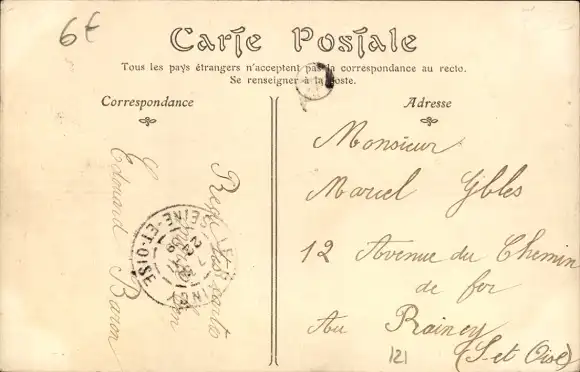 6€
Carte Postale
Tous les pays étrangers n'acceptent pas la correspondance au recto.
Se renseigner à la Poste.
Correspondance
Adresse
Monsieur
Marcel Ybles
12 Avenue du Chemin
de fer
Au Rainey
(S-et Oise)
121
Edouard Baron
SEINE-ET-OISE